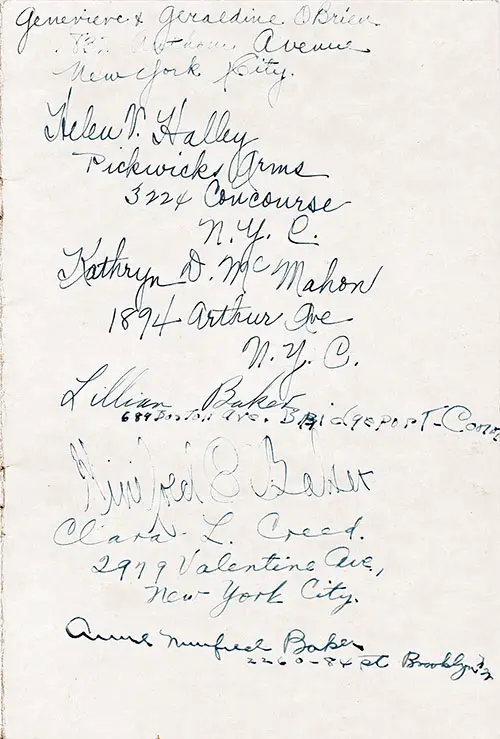 Genevieve & Geraldine O'Brien
Avenue
New York City.
Helen V. Halley
Pickwicks Arms
3224 Concourse
N.Y.C.
Kathryn D. McMahon
1894 Arthur Ave
N.Y.C.
Lillian Baker
689 Boston Ave. Bridgeport-Conn
Winifred E Baker
Clara L. Creed.
2979 Valentine Ave,
New York City.
Anne Winifred Baker
2260-84 st Brooklyn